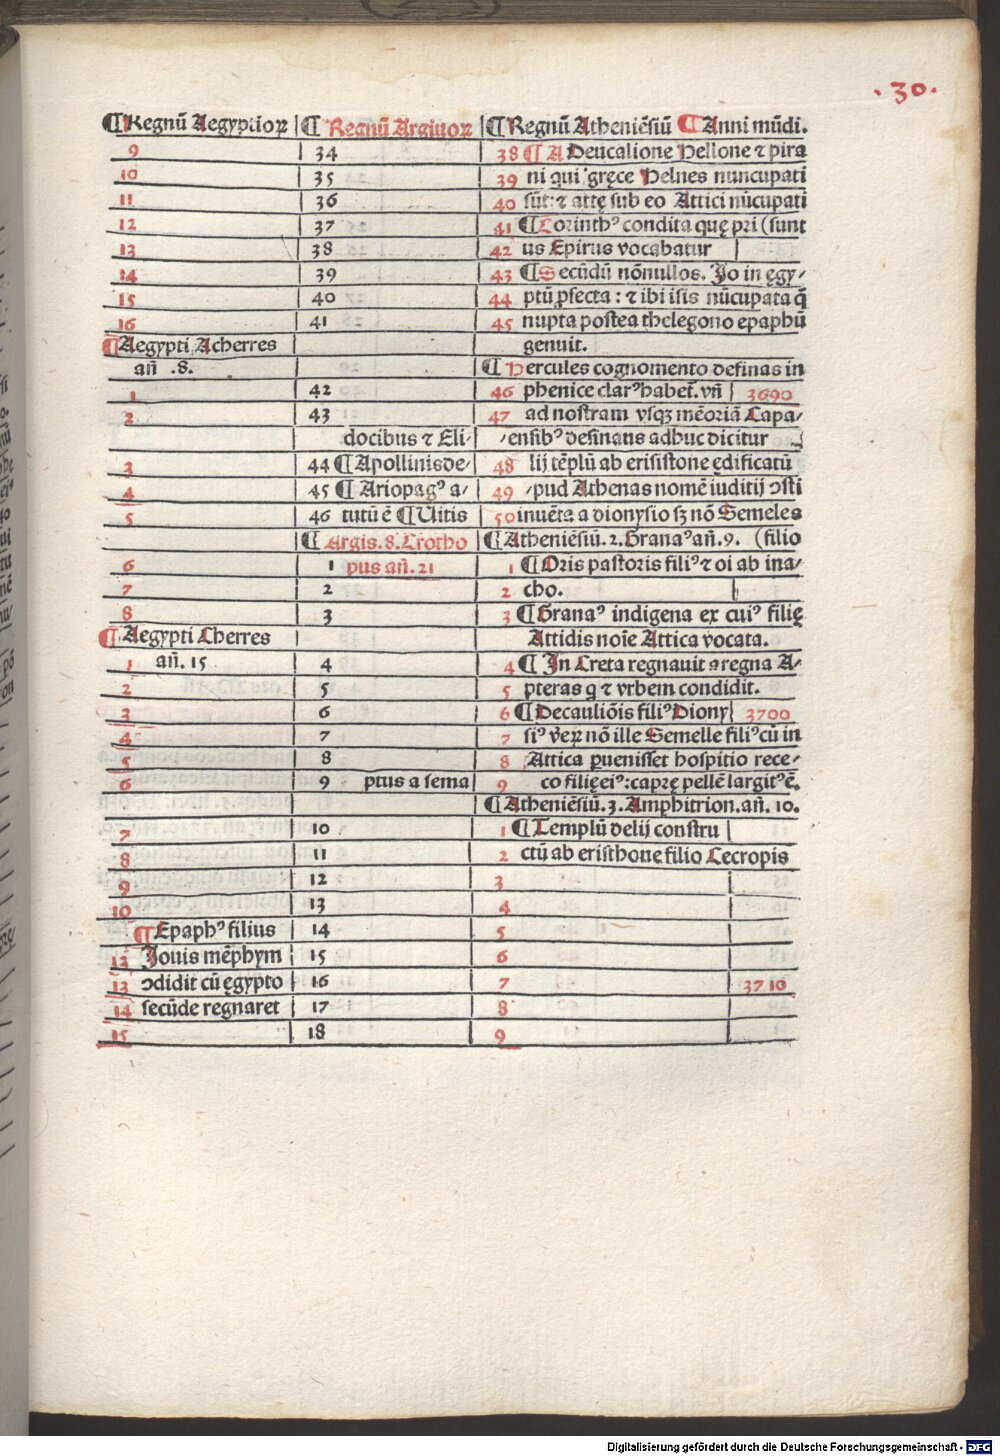 . 30 .
¶ Regnū Aegyptioꝝ ¶ Regnū Argiuoꝝ ¶ Regnū Atheniēsiū ¶ Anni mūdi.
9 34 38 ¶ A Deucalione Hellone ⁊ pira
10 35 39 ni qui gręce Helnes nuncupati
11 36 40 sūt: ⁊ attę sub eo Attici nūcupati
12 37 41 ¶ Corinthꝰ condita quę pri (sunt
13 38 42 us Epirus vocabatur
14 39 43 ¶ Secūdū nōnullos. Jo in ęgy⸗
15 40 44 ptū ꝓfecta: ⁊ ibi isis nūcupata q̄
16 41 45 nupta postea thelegono epaphū
¶ Aegypti Acherres genuit.
añ .8. ¶ Hercules cognomento definas in
1 42 46 phenice clarꝰ habet̄. vñ 3690
2 43 47 ad nostram vsqꝫ mēoriā Capa⸗
docibus ⁊ Eli⸗ ⸗ensibꝰ desinaus adhuc dicitur
3 44 ¶ Apollinis de⸗ 48 lij tēplū ab erisistone ędificatū
4 45 ¶ Ariopagꝰ a⸗ 49 ⸗pud Athenas nomē iuditij ↄsti
5 46 tutū ē ¶ Uitis 50 inuēta a dionysio sꝫ nō Semeles
¶ Argis. 8. Crotho ¶ Atheniēsiū. 2. Granaꝰ añ. 9. (filio
6 1 pus añ. 21 1 ¶ Oris pastoris filiꝰ ⁊ oi ab ina⸗
7 2 2 cho.
8 3 3 ¶ Granaꝰ indigena ex cuiꝰ filię
¶ Aegypti Cherres Attidis noīe Attica vocata.
1 añ. 15 4 4 ¶ In Creta regnauit a regna A⸗
2 5 5 pteras q ⁊ vrbem condidit.
3 6 6 ¶ Decauliōis filiꝰ Diony 3700
4 7 7 siꝰ veꝝ nō ille Semelle filiꝰ cū in
5 8 8 Attica ꝑuenisset hospitio rece⸗
6 9 ptus a sema 9 co filię eiꝰ: caprę pellē largitꝰ ē.
¶ Atheniēsiū. 3. Amphitrion. añ. 10.
7 10 1 ¶ Templū delij constru
8 11 2 ctū ab eristhone filio Cecropis
9 12 3
10 13 4
¶ Epaphꝰ filius 14 5
12 Jouis mēphym 15 6
13 ↄdidit cū ęgypto 16 7 3710
14 secūde regnaret 17 8
15 18 9
Digitalisierung gefördert durch die Deutsche Forschungsgemeinschaft - DFG